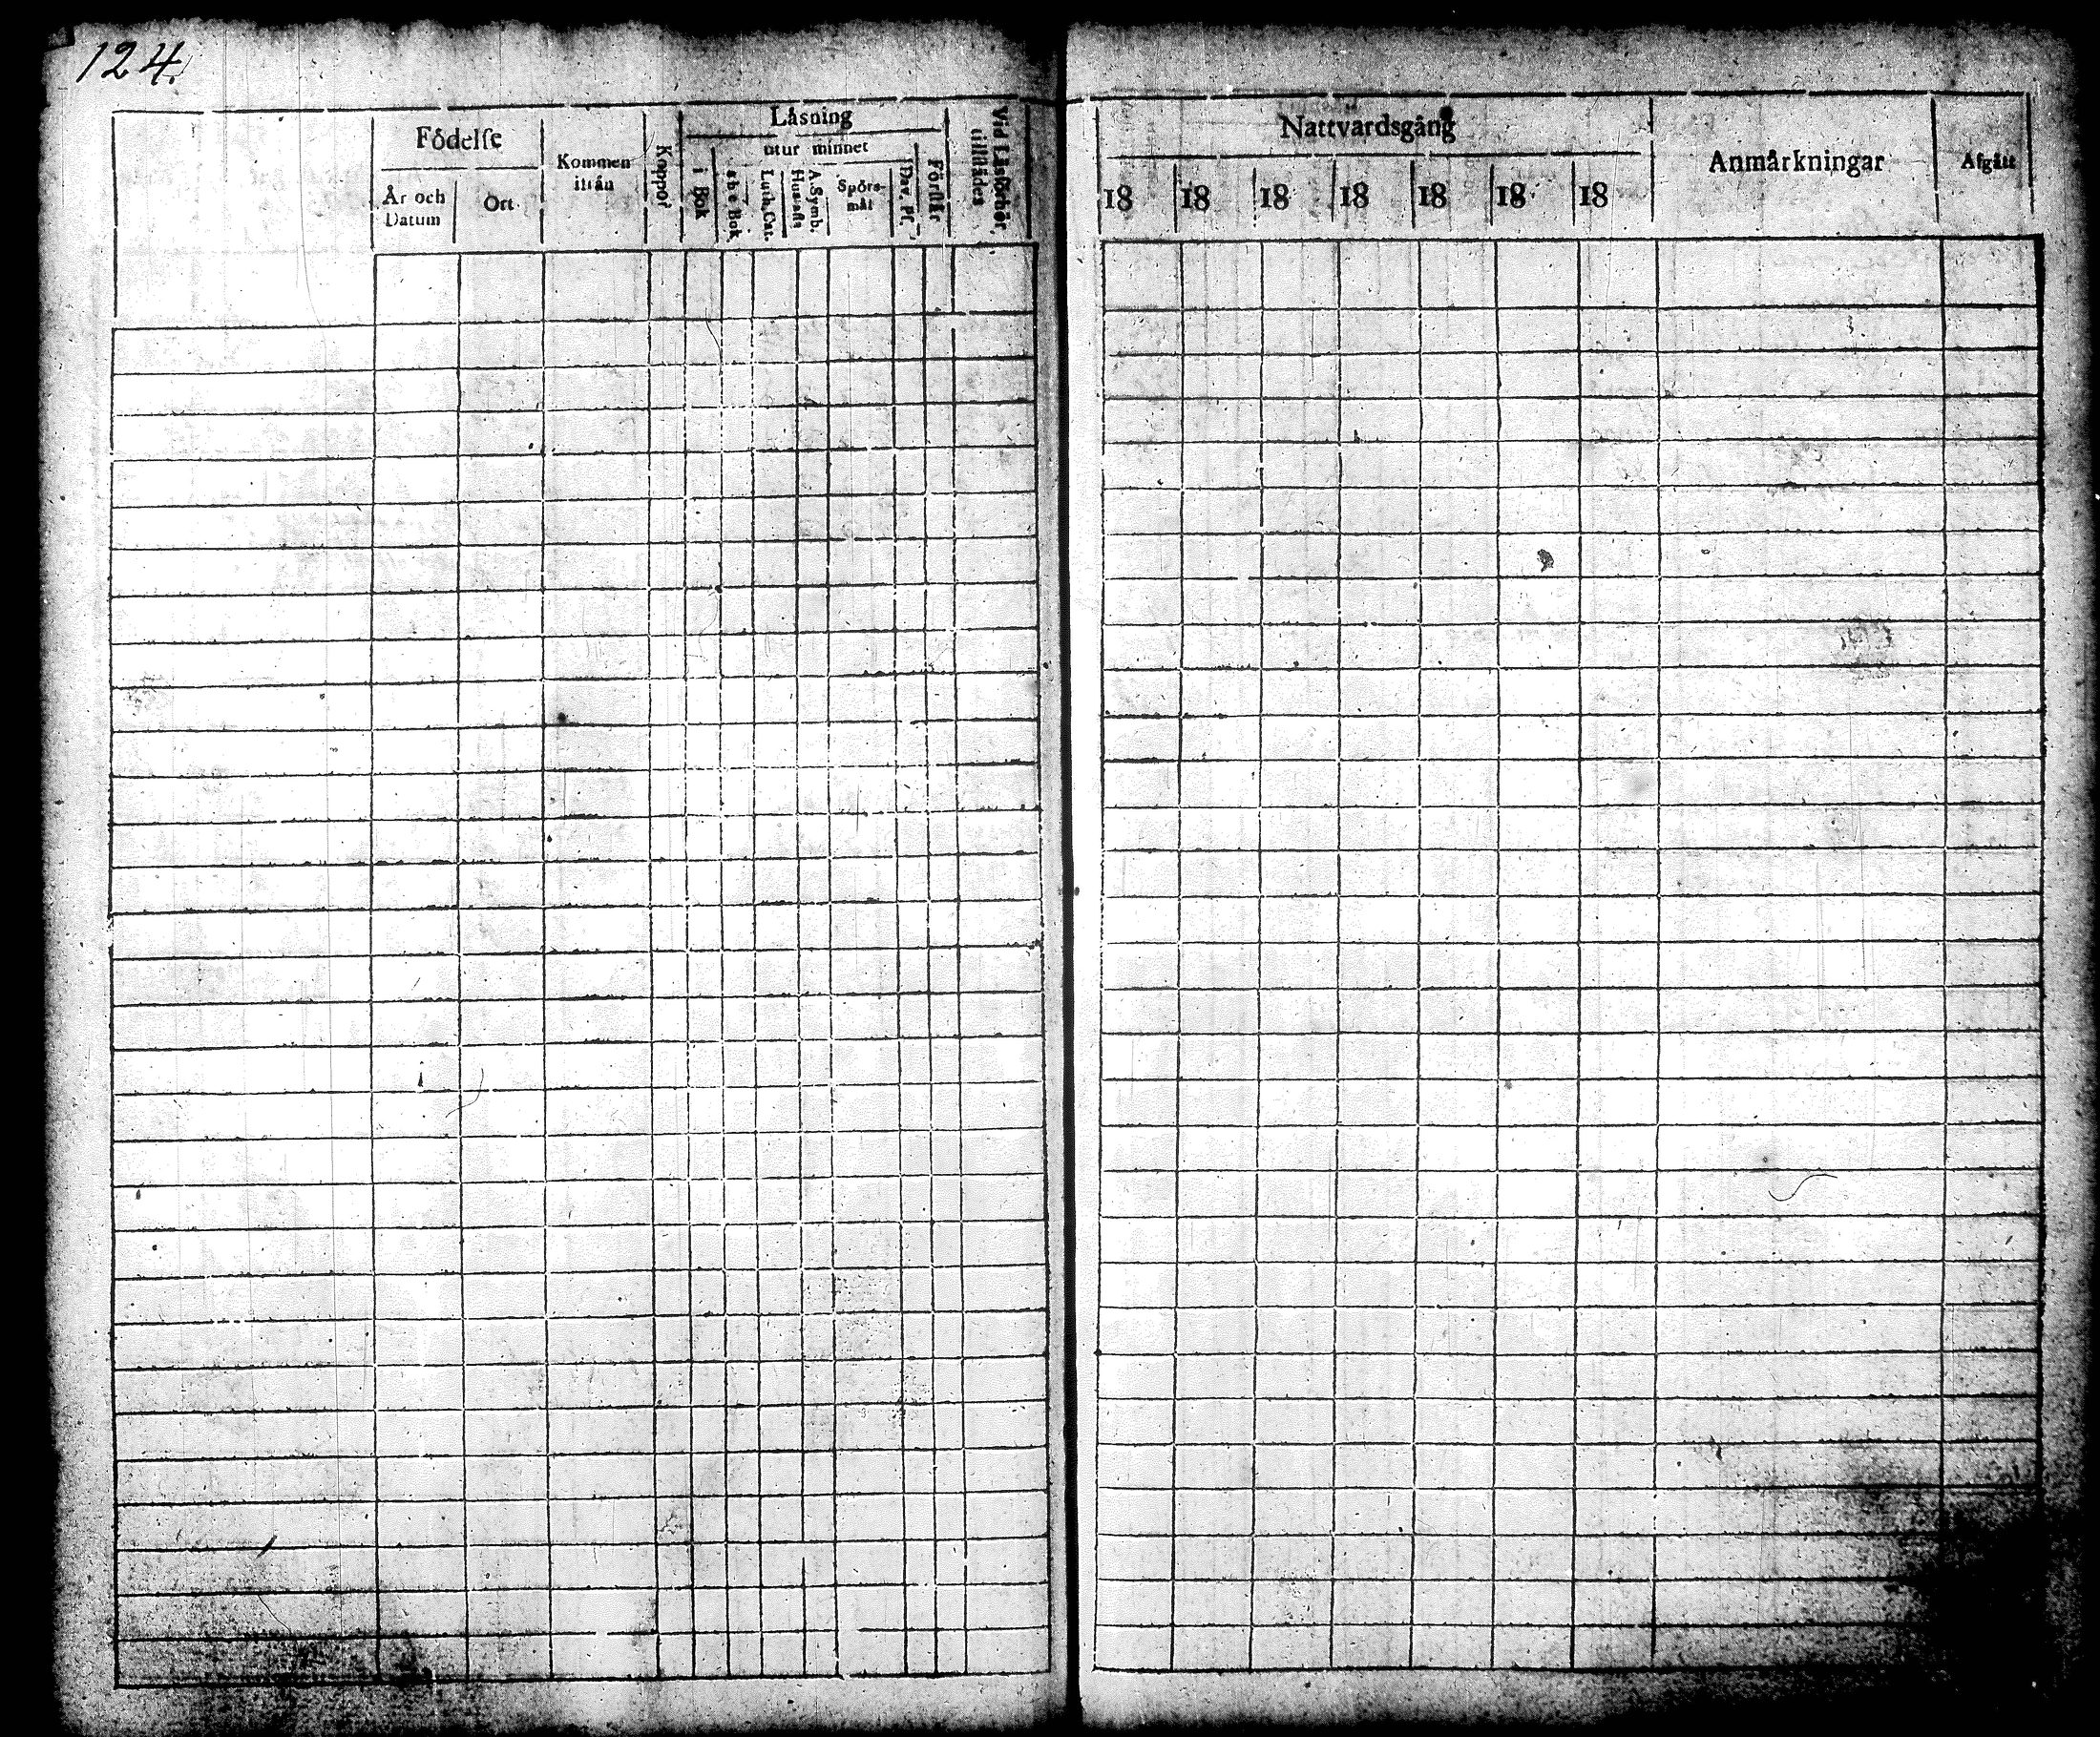 124.
Födelse
År och Datum
Ort
Kommen ifrån
Koppor
Läsning
i Bok
utur minnet
a b c Bok
Luth. Cat.
Hustafla
A. Symb.
Spörsmål
Dav. Ps.
Förstår
Vid Läsförhör, tillstädes
Nattvardsgång
18 18 18 18 18 18 18
Anmärkningar
Afgått